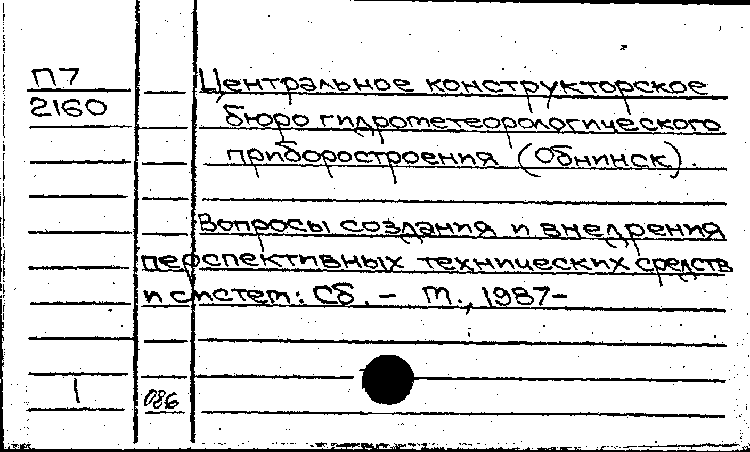 П7
2160
Центральное конструкторское
бюро гидрометеорологического
приборостроения (Обнинск).
Вопросы создания и внедрения
перспективных технических средств
и систем: Сб. – М., 1987–
1
086